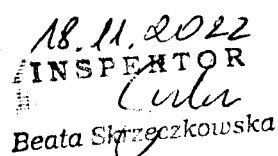 18.11.2022
INSPEKTOR
Beata Skrzeczkowska